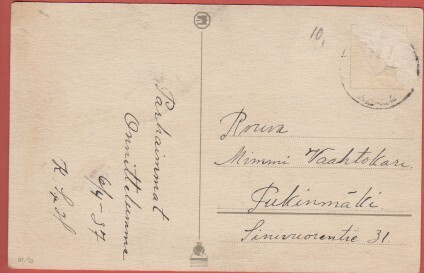 Parhaimmat
Onnittelumme
6/4-37
10,
Rouva
Mimmi Vaahtokari
Pukinmäki
Sinivuorentie 31